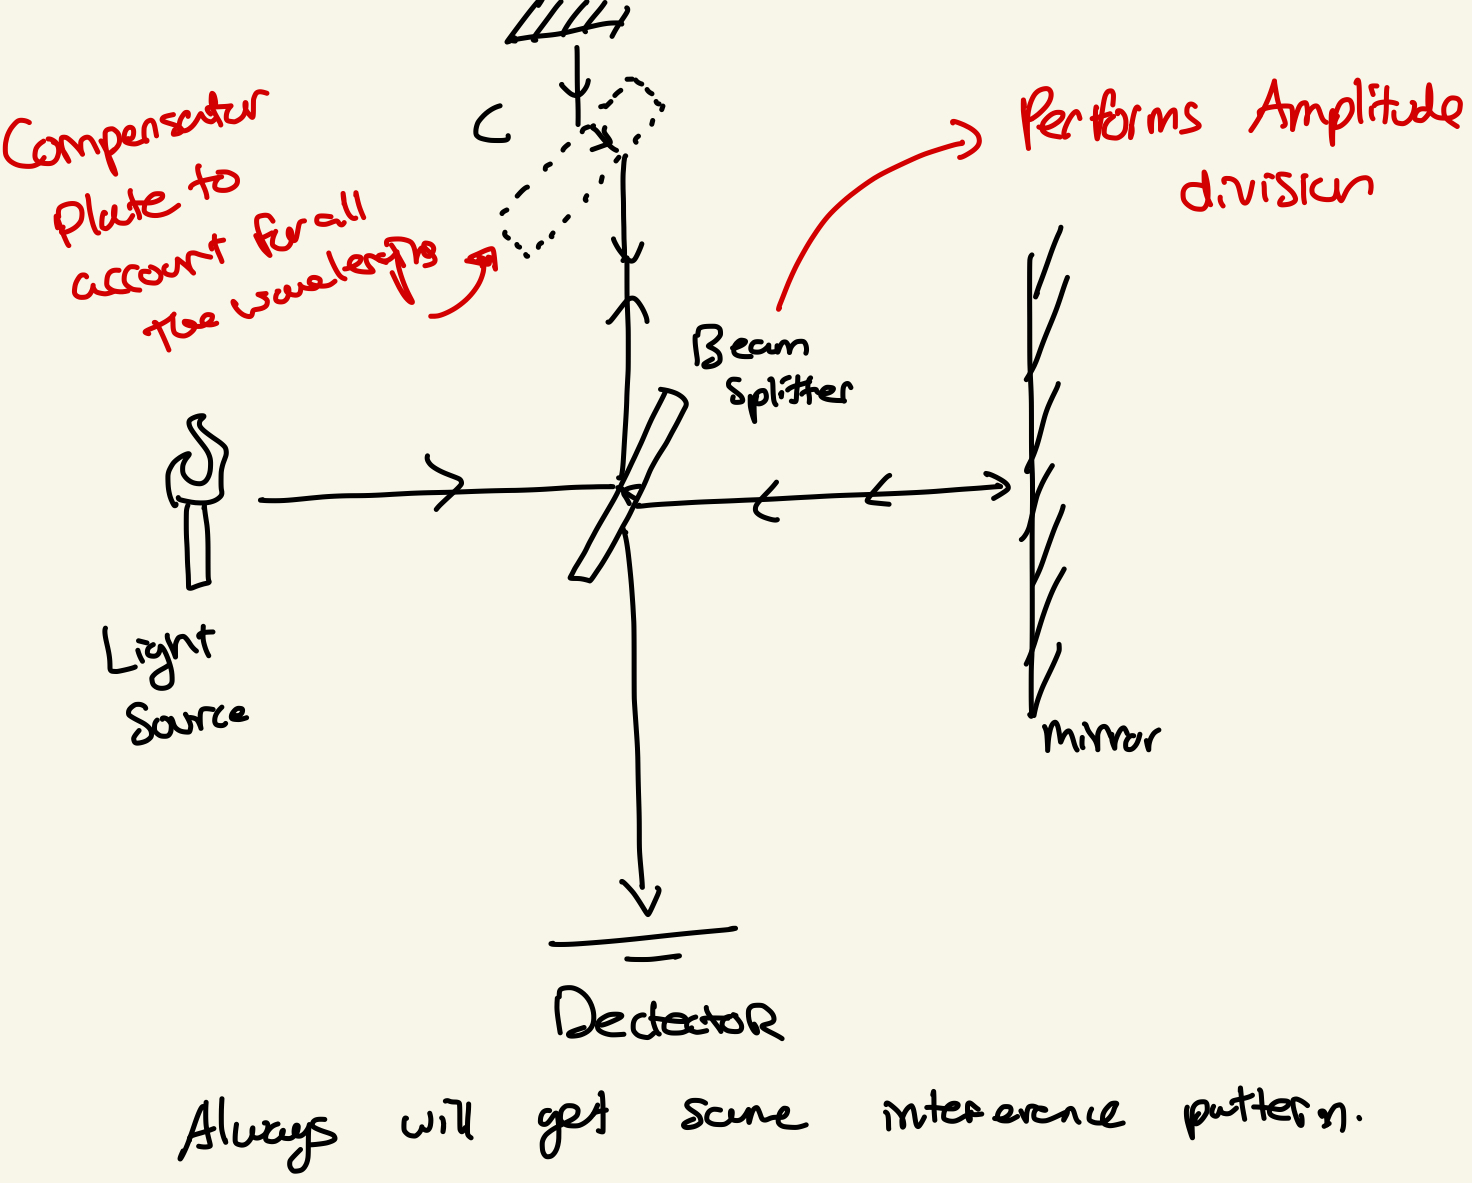 C
Compensator
Plate to
account for all
the wavelengths
Performs Amplitude
division
Beam
Splitter
Light
Source
Mirror
Dectector
Always will get same interference pattern.